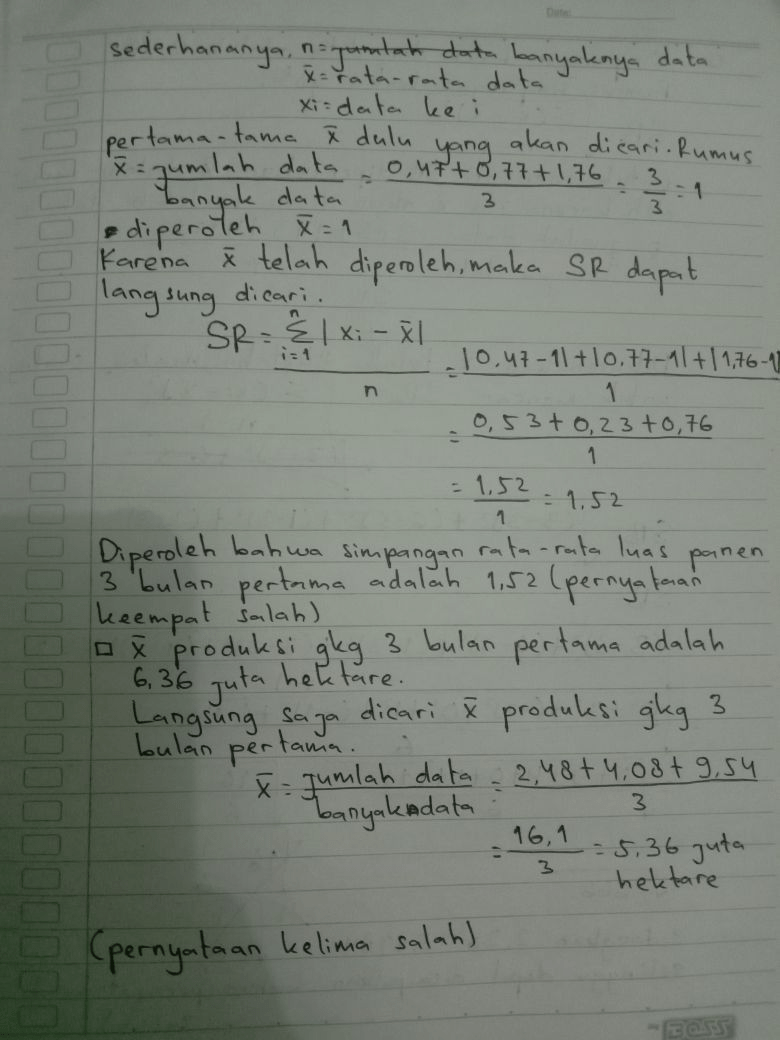 Date:
sederhananya, n = jumlah data banyaknya data
x̄ = rata-rata data
xi = data ke i
pertama-tama x̄ dulu yang akan dicari. Rumus
x̄ = jumlah data / banyak data = 0,47 + 0,77 + 1,76 / 3 = 3/3 = 1
diperoleh x̄ = 1
Karena x̄ telah diperoleh, maka SR dapat
langsung dicari.
SR = n Σ i=1 | xi - x̄ | / n = |0,47 - 1| + |0,77 - 1| + |1,76 - 1| / 1
= 0,53 + 0,23 + 0,76 / 1
= 1,52 / 1 = 1,52
Diperoleh bahwa simpangan rata-rata luas panen
3 bulan pertama adalah 1,52 (pernyataan
keempat salah)
□ x̄ produksi gkg 3 bulan pertama adalah
6,36 juta hektare.
Langsung saja dicari x̄ produksi gkg 3
bulan pertama.
x̄ = jumlah data / banyak data = 2,48 + 4,08 + 9,54 / 3
= 16,1 / 3 = 5,36 juta
hektare
(pernyataan kelima salah)
BOSS